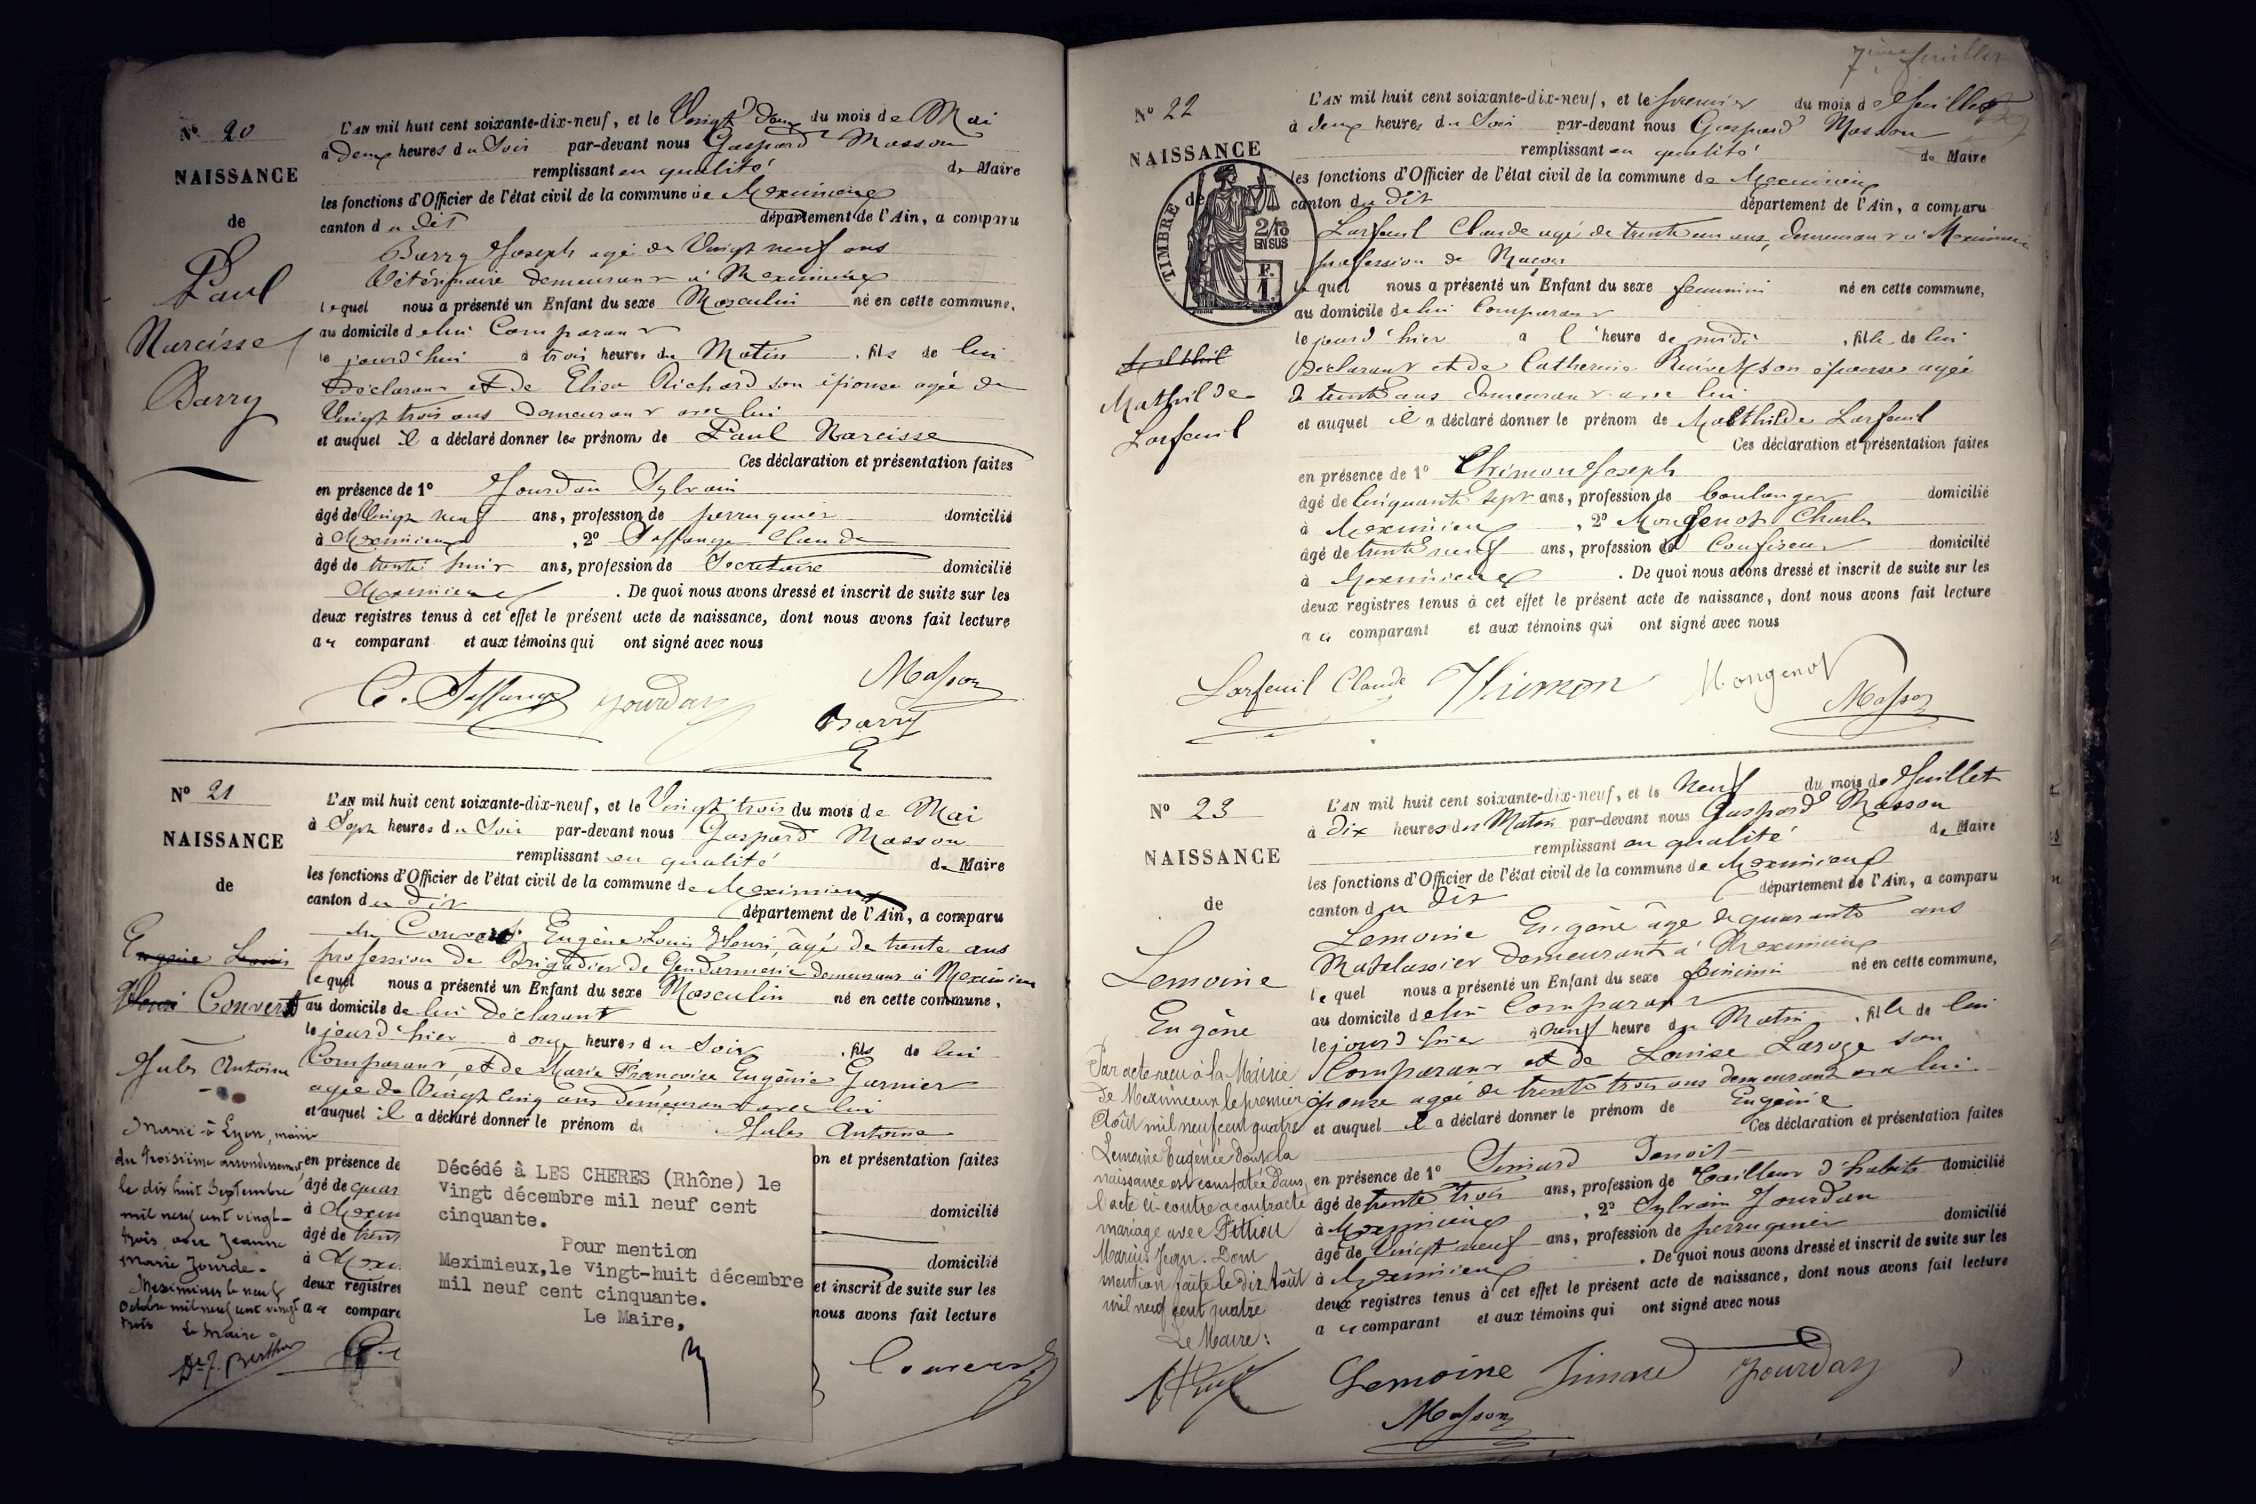 Nº 20
NAISSANCE
de
Paul
Narcisse
Barry
L'AN mil huit cent soixante-dix-neuf, et le Vingt deux du mois de Mai
à deux heures du Soir par-devant nous Gaspard Masson
remplissant en qualité de Maire
les fonctions d'Officier de l'état civil de la commune de Meximieux
canton du dit département de l'Ain, a comparu
Barry Joseph agé de Vingt neuf ans
Vétérinaire demeurant à Meximieux
lequel nous a présenté un Enfant du sexe Masculin né en cette commune,
au domicile de lui Comparant
le jourd'hui à trois heures du Matin, fils de lui
Déclarant et de Elisa Richard son épouse agée de
Vingt trois ans demeurant avec lui
et auquel il a déclaré donner les prénoms de Paul Narcisse
Ces déclaration et présentation faites
en présence de 1º Jourdan Sylvain
âgé de Vingt neuf ans, profession de perruquier domicilié
à Meximieux, 2º Claude
âgé de trente huit ans, profession de Secretaire domicilié
Meximieux. De quoi nous avons dressé et inscrit de suite sur les
deux registres tenus à cet effet le présent acte de naissance, dont nous avons fait lecture
au comparant et aux témoins qui ont signé avec nous
C. Jourdan Masson
Barry
Nº 21
NAISSANCE
de
Eugène Louis
Henri Convert
Jules Antoine
L'AN mil huit cent soixante-dix-neuf, et le Vingt trois du mois de Mai
à Sept heures du Soir par-devant nous Gaspard Masson
remplissant en qualité de Maire
les fonctions d'Officier de l'état civil de la commune de Meximieux
canton du dit département de l'Ain, a comparu
Convert Eugène Louis Henri, âgé de trente ans
profession de Brigadier de Gendarmerie demeurant à Meximieux
lequel nous a présenté un Enfant du sexe Masculin né en cette commune,
au domicile de lui Déclarant
le jourd'hier à onze heures du Soir, fils de lui
Comparant, et de Marie Françoise Eugénie Garnier
agée de Vingt cinq ans demeurant avec lui
et auquel il a déclaré donner le prénom de Jules Antoine
on et présentation faites
en présence de
âgé de quar
domicilié
à Mexim
âgé de trent
domicilié
à Mexi
et inscrit de suite sur les
deux registres
nous avons fait lecture
au compara
Convert
Marié à Lyon, mairie
du troisième arrondissement,
le dix huit Septembre
mil neuf cent vingt-
trois, avec Jeanne
Marie Jourde.
Meximieux le neuf
Octobre mil neuf cent vingt
trois
Le Maire.
Dr J. Berthier
Décédé à LES CHERES (Rhône) le
Vingt décembre mil neuf cent
cinquante.
Pour mention
Meximieux, le Vingt-huit décembre
mil neuf cent cinquante.
Le Maire,
7ième feuillet
Nº 22
NAISSANCE
de
TIMBRE
2/10
EN SUS
F.
1.
Mathilde
Larfeuil
L'AN mil huit cent soixante-dix-neuf, et le premier du mois de Juillet
à deux heures du Soir par-devant nous Gaspard Masson
remplissant en qualité de Maire
les fonctions d'Officier de l'état civil de la commune de Meximieux
canton du dit département de l'Ain, a comparu
Larfeuil Claude agé de trente un ans, demeurant à Meximieux
profession de Maçon
lequel nous a présenté un Enfant du sexe feminin né en cette commune,
au domicile de lui Comparant
le jourd'hier à l'heure de midi, fille de lui
Déclarant et de Catherine son épouse agée
de trente ans demeurant avec lui
et auquel il a déclaré donner le prénom de Malthilde Larfeuil
Ces déclaration et présentation faites
en présence de 1º Joseph
âgé de Cinquante sept ans, profession de boulanger domicilié
à Meximieux, 2º Mongenot Charles
âgé de trente neuf ans, profession de Confiseur domicilié
à Meximieux. De quoi nous avons dressé et inscrit de suite sur les
deux registres tenus à cet effet le présent acte de naissance, dont nous avons fait lecture
au comparant et aux témoins qui ont signé avec nous
Larfeuil Claude Mongenot
Masson
Nº 23
NAISSANCE
de
Lemoine
Eugène
L'AN mil huit cent soixante-dix-neuf, et le Neuf du mois de Juillet
à dix heures du Matin par-devant nous Gaspard Masson
remplissant en qualité de Maire
les fonctions d'Officier de l'état civil de la commune de Meximieux
canton du dit département de l'Ain, a comparu
Lemoine Eugène âgé de quarante ans
Matelassier demeurant à Meximieux
lequel nous a présenté un Enfant du sexe féminin né en cette commune,
au domicile de lui Comparant
le jourd'hier à neuf heure du Matin, fille de lui
Comparant et de Louise Laroze son
épouse agée de trente trois ans demeurant avec lui
et auquel il a déclaré donner le prénom de Eugénie
Ces déclaration et présentation faites
en présence de 1º Simard Benoit
âgé de trente trois ans, profession de Tailleur d'habits domicilié
à Meximieux, 2º Sylvain Jourdan
âgé de Vingt neuf ans, profession de perruquier domicilié
à Meximieux. De quoi nous avons dressé et inscrit de suite sur les
deux registres tenus à cet effet le présent acte de naissance, dont nous avons fait lecture
au comparant et aux témoins qui ont signé avec nous
Lemoine Simard Jourdan
Masson
Par acte reçu à la Mairie
de Meximieux le premier
Août mil neuf cent quatre
Lemoine Eugénie dont la
naissance est constatée dans
l'acte ci-contre a contracté
mariage avec
Marius Jean. Dont
mention faite le dix Août
mil neuf cent quatre
Le Maire: